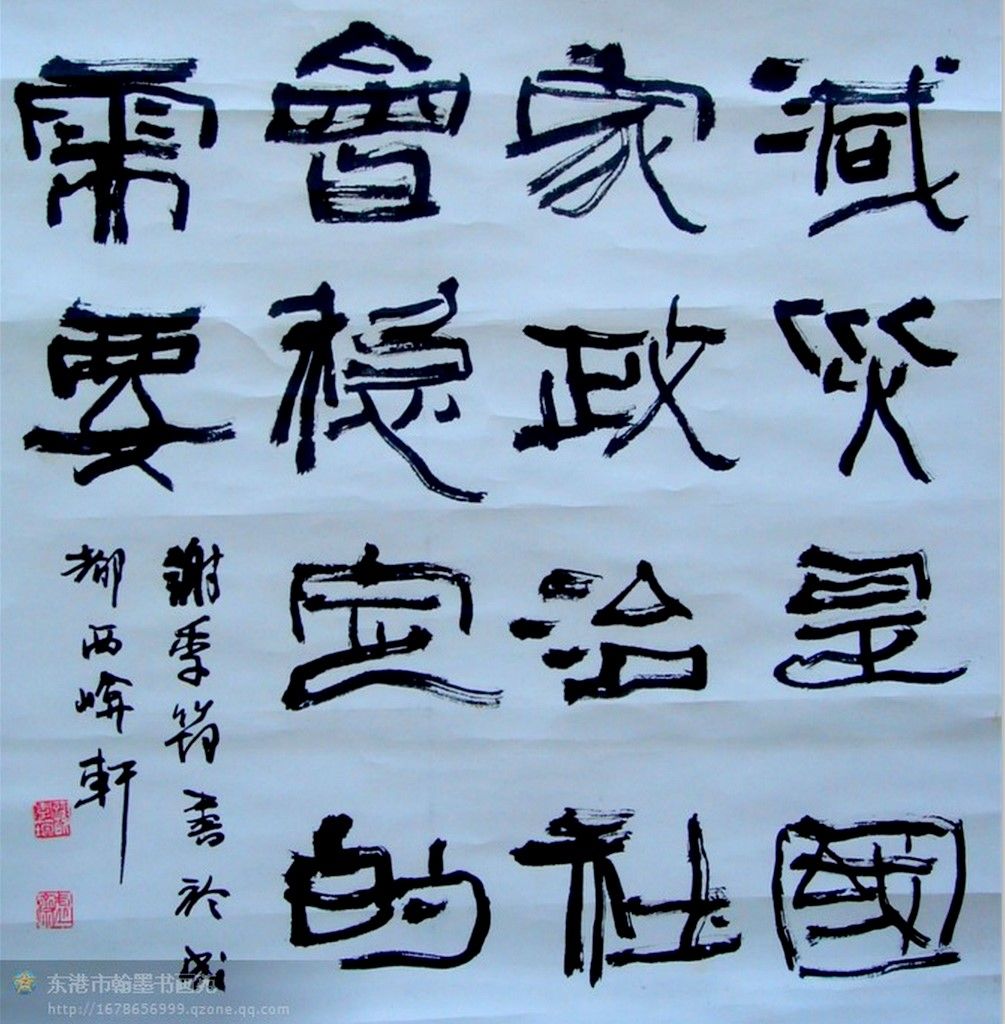 減災是國
家政治社
會穩定的
需要
謝季筠書於成
都兩峰軒
东港市翰墨书画苑
http://1678656999.qzone.qq.com